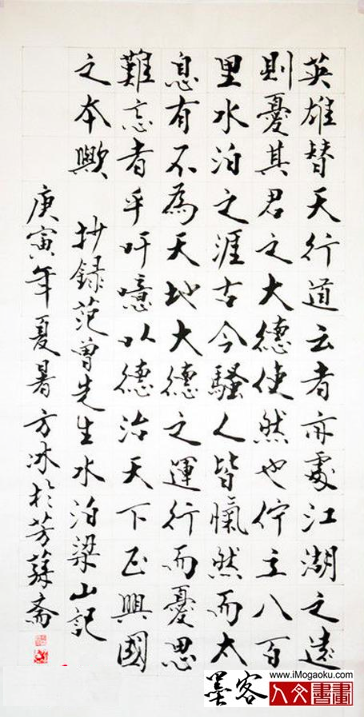 英雄替天行道云者亦處江湖之遠
則憂其君之大德使然也佇立八百
里水泊之涯古今騷人皆愾然而太
息有不為天地大德之運行而憂思
難忘者乎吁噫以德治天下正興國
之本歟
抄錄范曾先生水泊梁山記
庚寅年夏暑方冰於芳蘇齋
墨客
www.iMogaoku.com
人文書畫